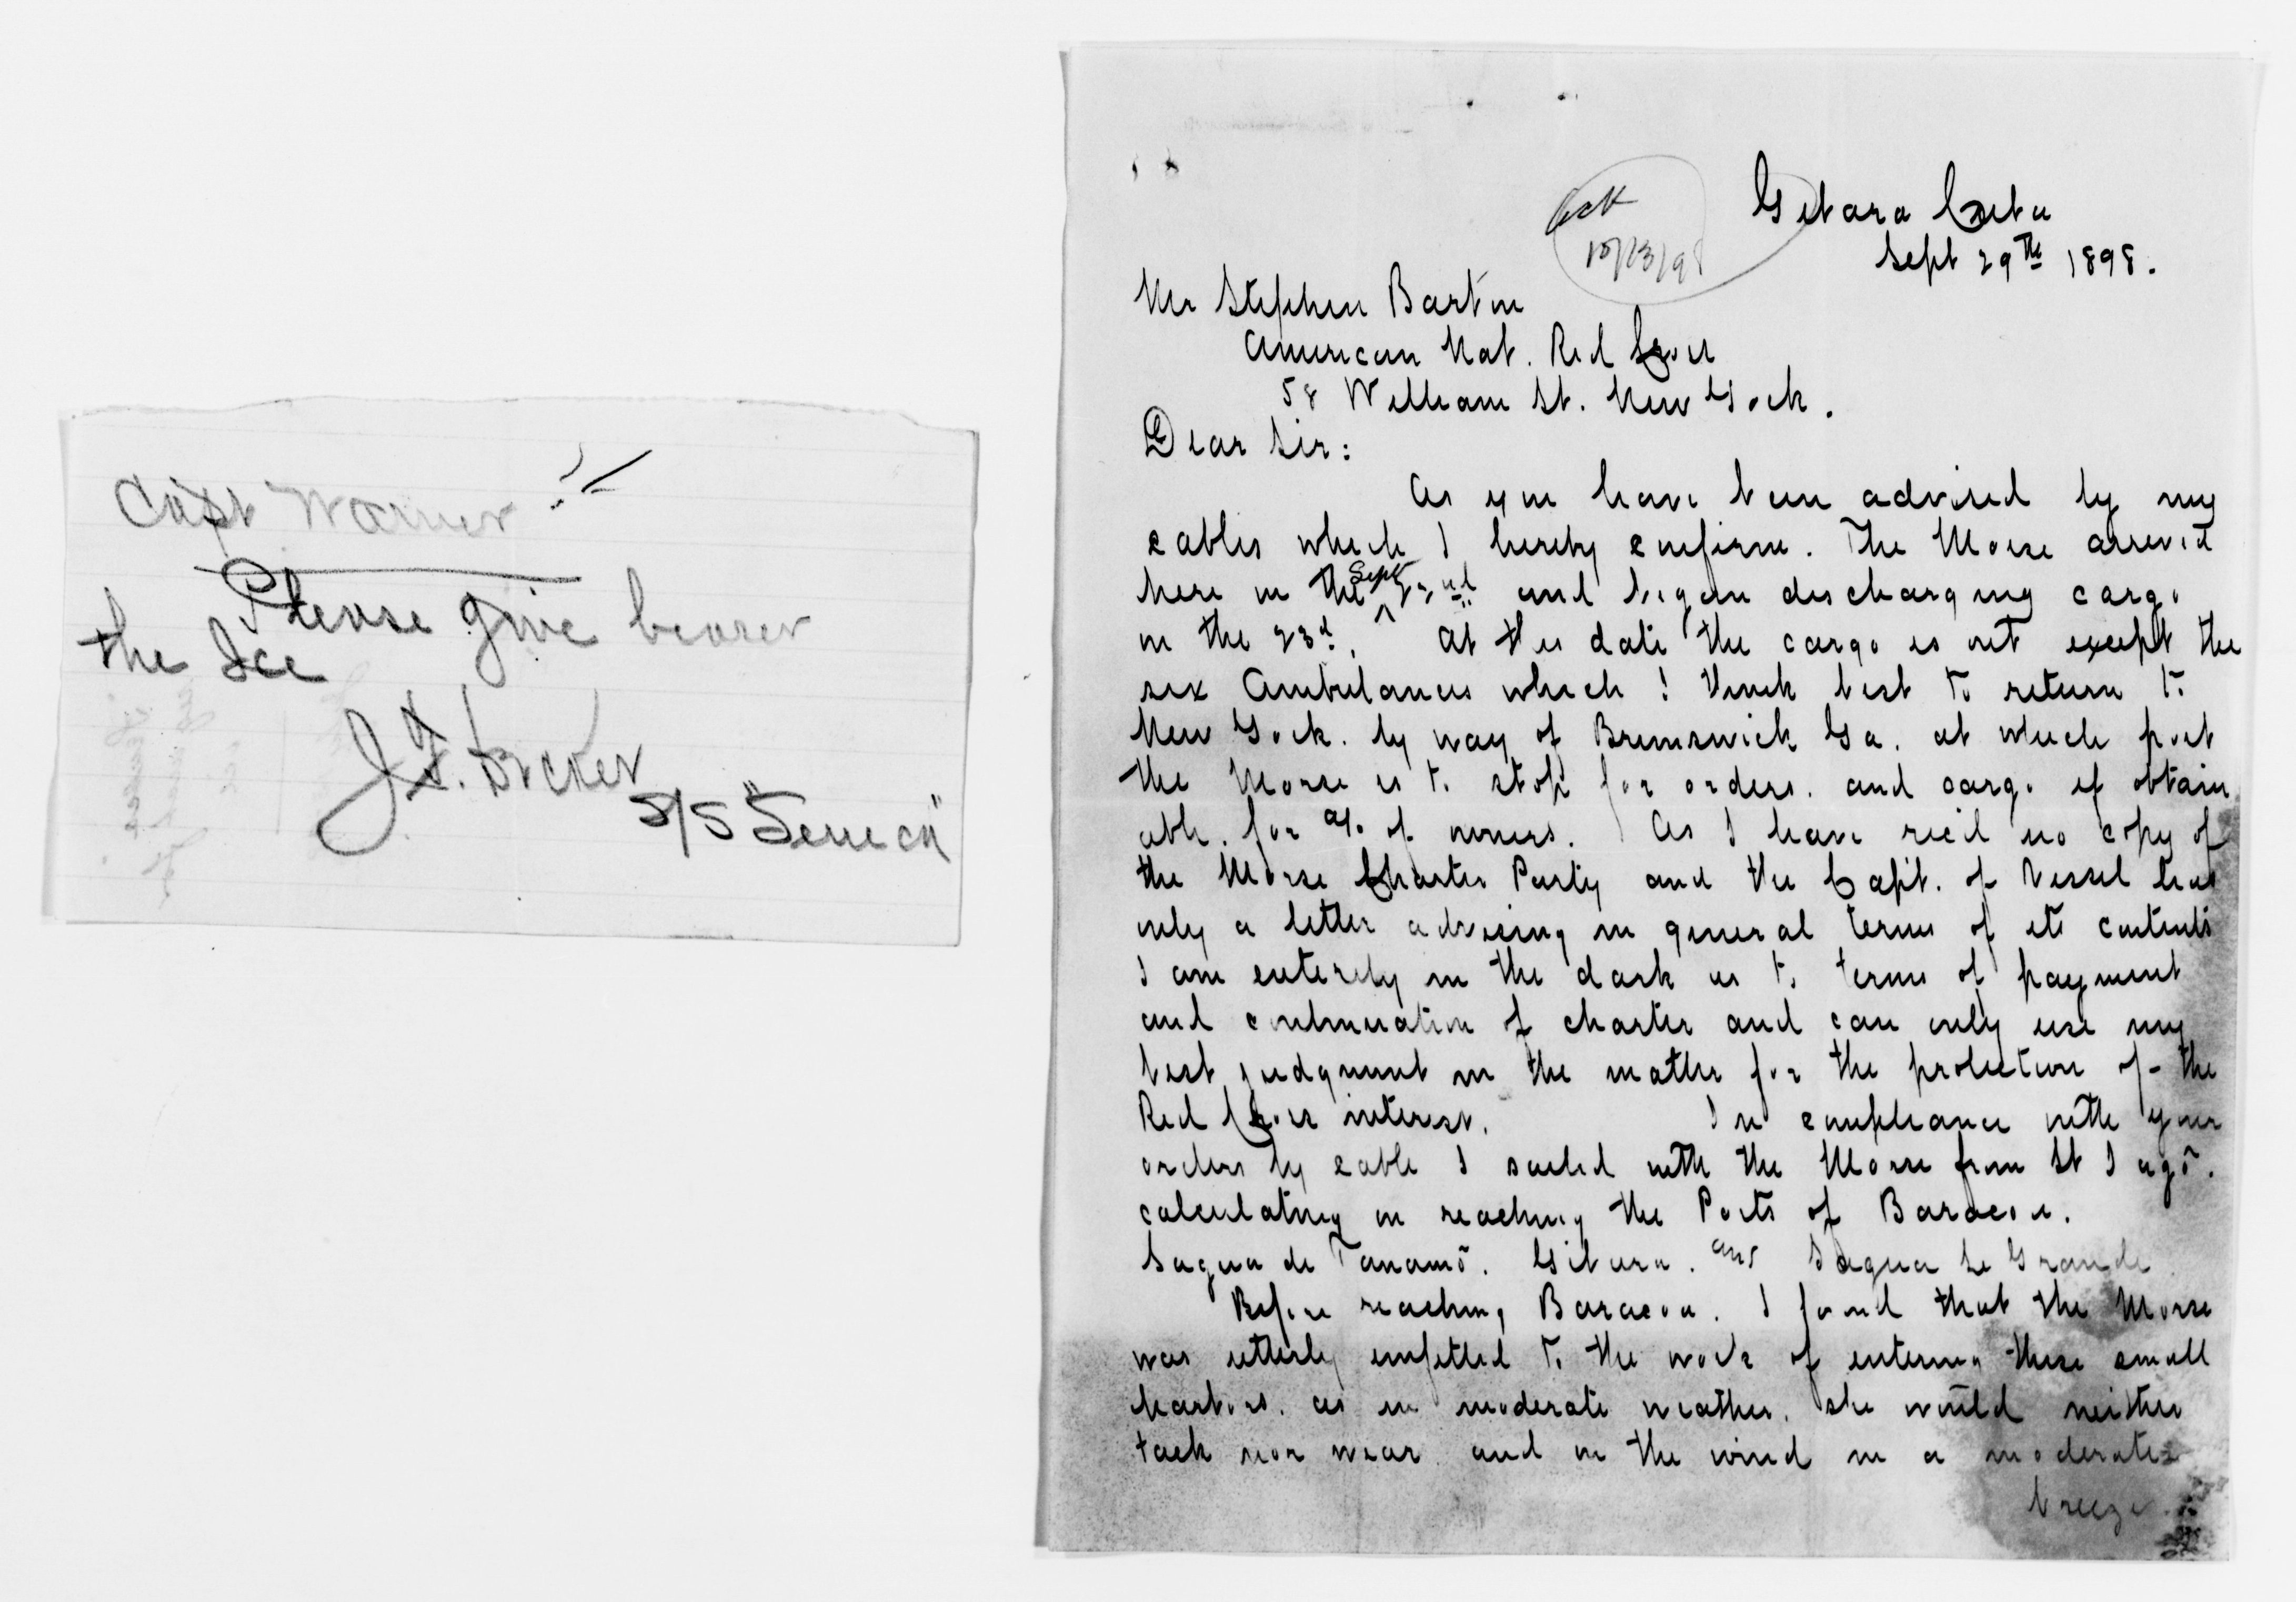 Capt Warner :-
Please give bearer
the Ice
J. F.
S/S "Seneca"
Ack
10/13/98
Gibara Cuba
Sept 29th 1898.
Mr Stephen Barton
American Nat. Red Cross
58 William St. New York.
Dear Sir:
As you have been advised by my
cables which I hereby confirm. The Morse arrived
here on the Sept 22nd and began discharging cargo
on the 23d. At this date the cargo is out except the
six Ambulances which I think best to return to
New York. by way of Brunswick Ga. at which port
the Morse is to stop for orders. and cargo if obtain
able. for a/c of owners. As I have rec'd no copy of
the Morse Charter Party and the Capt. of Vessel has
only a letter advising in general terms of its contents
I am entirely in the dark as to terms of payment
and continuation of charter and can only use my
best judgment in the matter for the protection of the
Red Cross interest. In compliance with your
orders by cable I sailed with the Morse from St Iago.
calculating on reaching the Ports of Baracoa.
Sagua de Tanamo. Gibara. and Sagua La Grande
Before reaching Baracoa. I found that the Morse
was utterly unfitted to the work of entering these small
harbors. as in moderate weather. she would neither
tack nor wear and on the wind in a moderate
breeze.